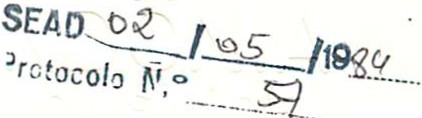 SEAD 02 / 05 / 1984
Protocolo N.º 57